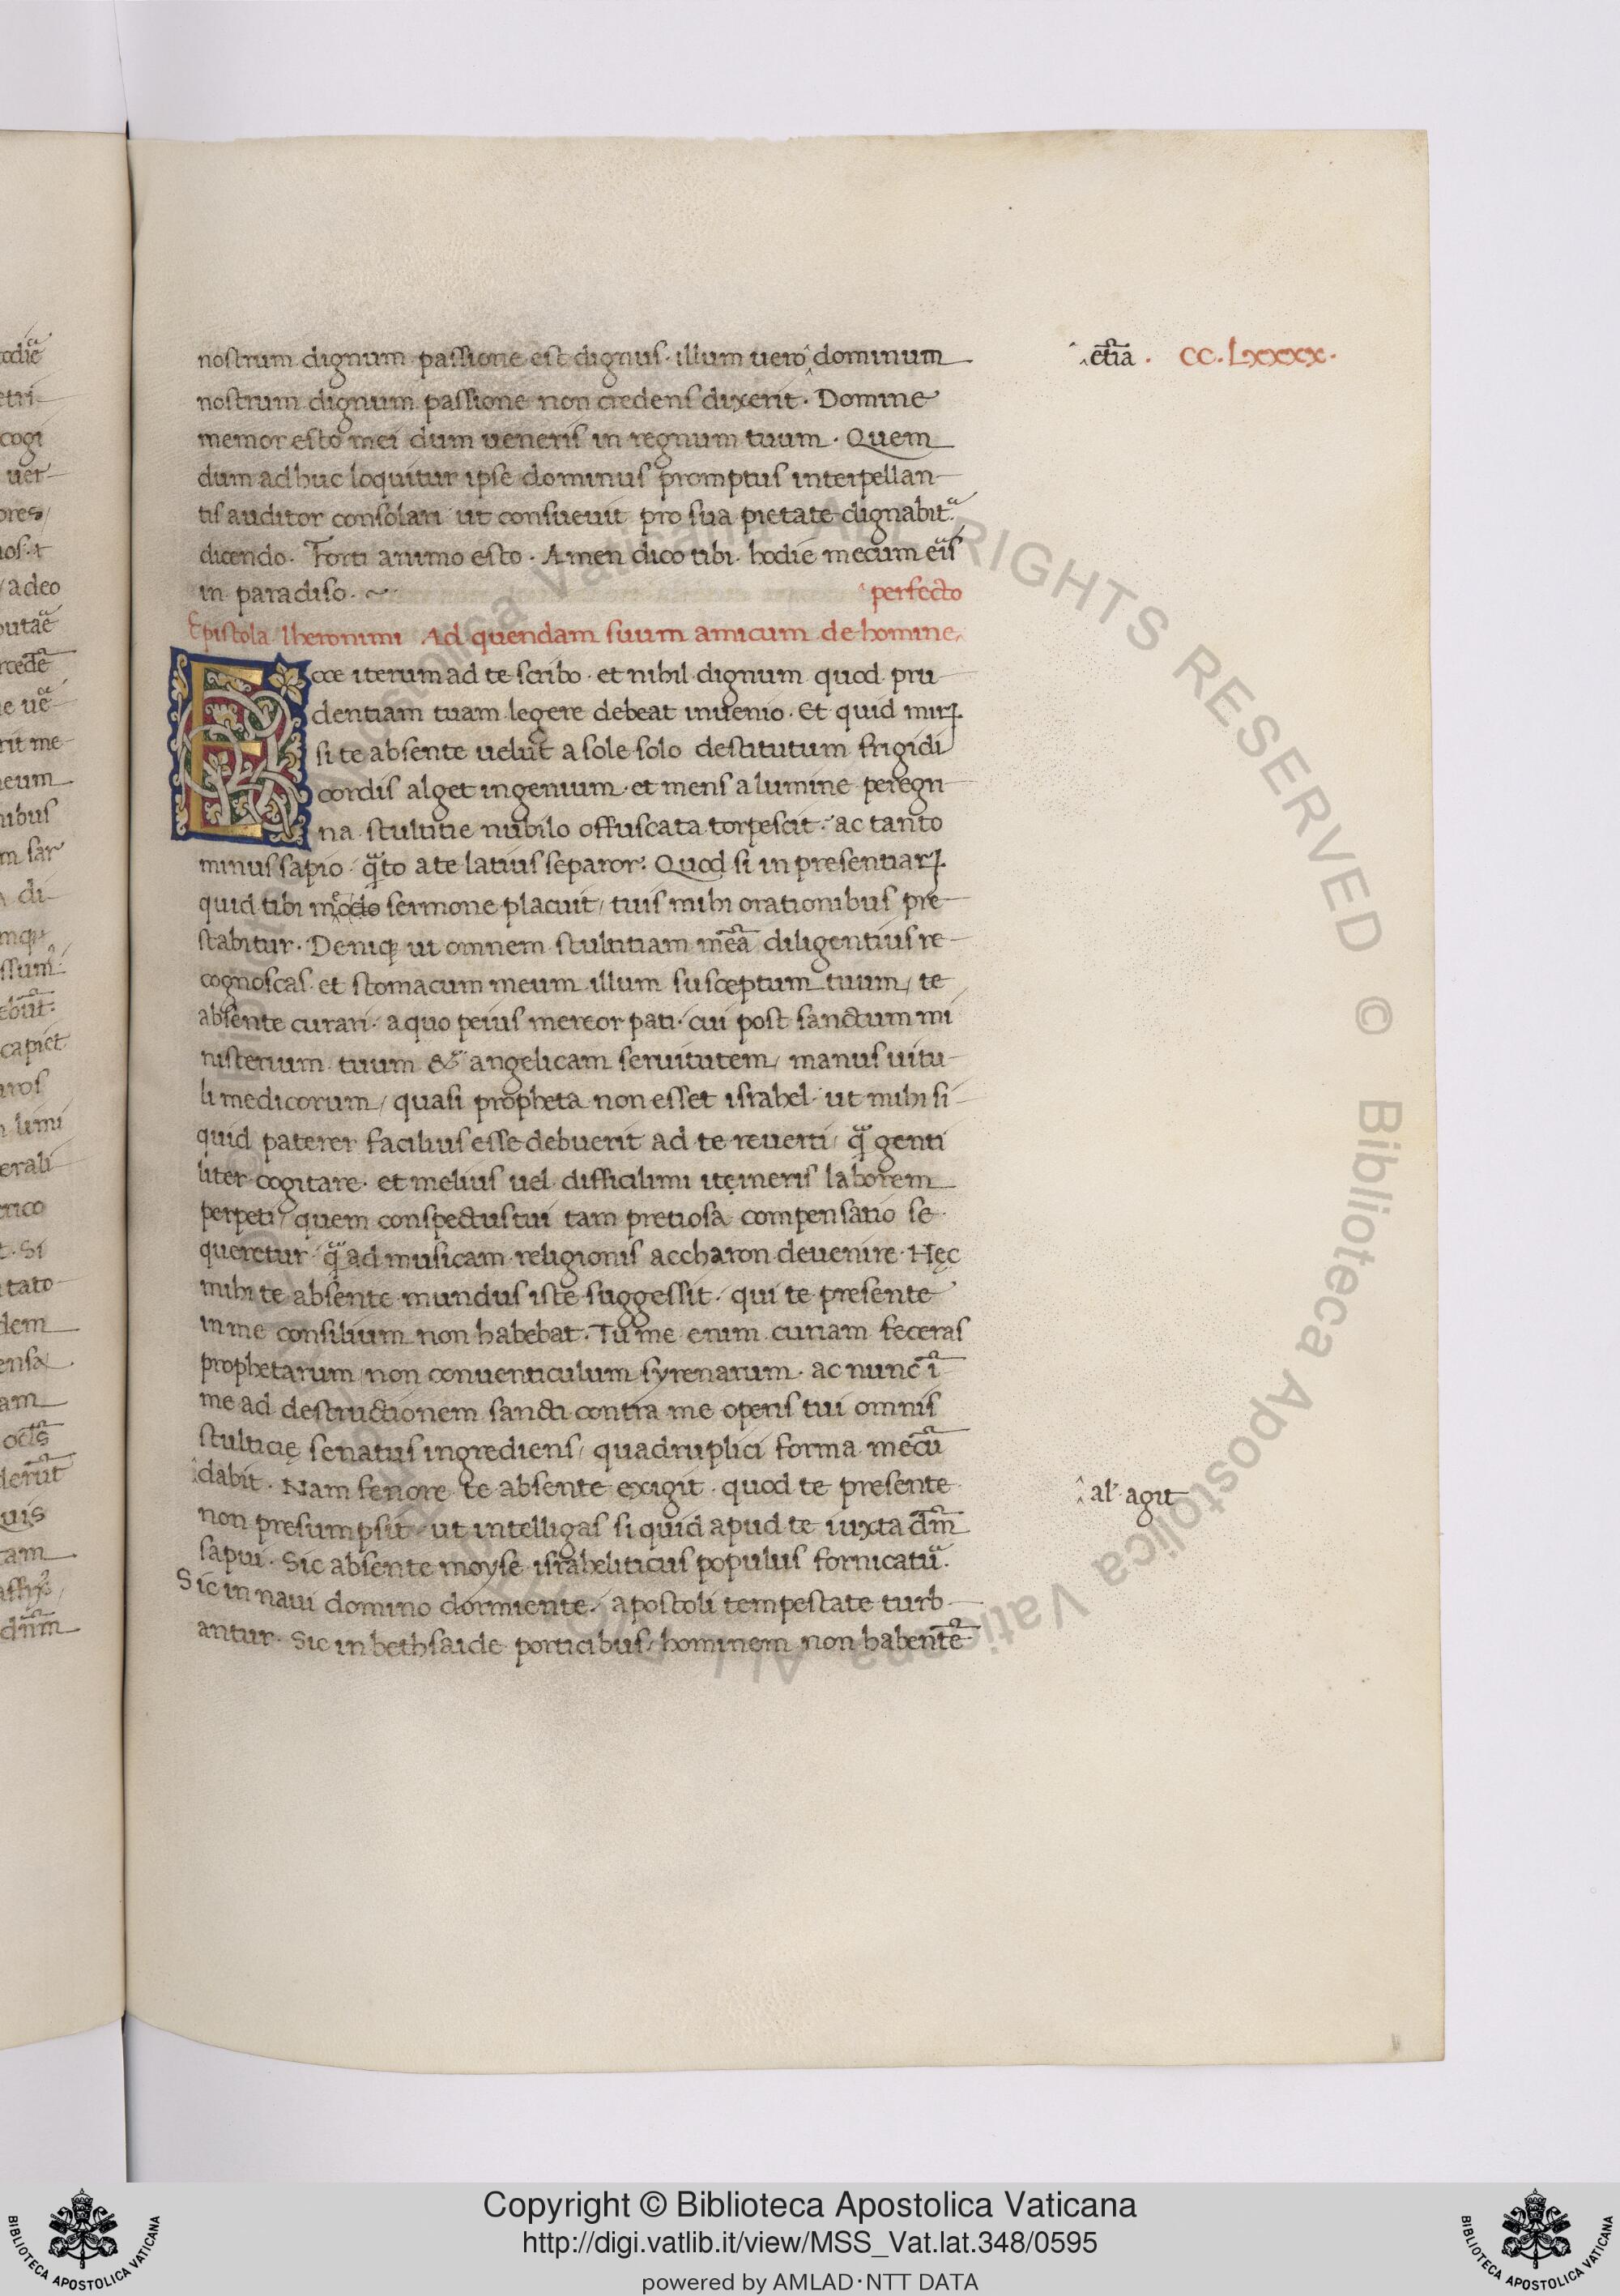 nostrum dignum passione est dignus. illum uero ^ dominum
^ etiã . CC.LXXXX.
nostrum dignum passione non credens dixerit. Domine
memor esto mei dum ueneris in regnum tuum. Quem
dum adhuc loquitur ipse dominus promptus interpellan-
tis auditor consolari ut consueuit pro sua pietate dignabit᷑.
dicendo. Forti animo esto. Amen dico tibi. hodie mecum eĩs
in paradiso. ~
perfecto
Epistola Iheronimi Ad quendam suum amicum de homine
Ecce iterum ad te scribo. et nihil dignum quod pru-
dentiam tuam legere debeat inuenio. Et quid mirꝝ.
si te absente uelut a sole solo destitutum frigidi
cordis alget ingenium. et mens a lumine peregri-
na stultitie nubilo offuscata torpescit. ac tanto
minus sapio. q̃to a te latius separor. Quod si in presentiarꝝ.
quid tibi modo sermone placuit, tuis mihi orationibus pre-
stabitur. Deniqꝫ ut omnem stultitiam meã diligentius re-
cognoscas. et stomacum meum illum susceptum tuum, te
absente curari. a quo peius mereor pati. cui post sanctum mi
nisterium tuum & angelicam seruitutem, manus uitu-
li medicorum, quasi propheta non esset israhel. ut mihi si-
quid paterer facilius esse debuerit ad te reuerti, q̃ genti
liter cogitare. et melius uel difficilimi itineris laborem
perpeti, quem conspectus tui tam pretiosa compensatio se-
queretur. q̃ ad musicam religionis accharon deuenire. Hęc
mihi te absente mundus iste suggessit. qui te presente
in me consilium non habebat. Tu me enim curiam feceras
prophetarum, non conuenticulum syrenarum. ac nunc ĩ
me ad destructionem sancti contra me operis tui omnis
stulticię senatus ingrediens, quadruplici forma mecũ
^dabit. Nam fenore te absente exigit. quod te presente
^ al' agit
non presumpsit. ut intelligas si quid apud te iuxta dm̃
sapui. Sic absente moyse israheliticus populus fornicatur᷑.
Sic in naui domino dormiente, apostoli tempestate turb-
antur. Sic in bethsaide porticibus, hominem non habentẽ
Copyright © Biblioteca Apostolica Vaticana
http://digi.vatlib.it/view/MSS_Vat.lat.348/0595
powered by AMLAD·NTT DATA
BIBLIOTECA APOSTOLICA VATICANA
BIBLIOTECA APOSTOLICA VATICANA